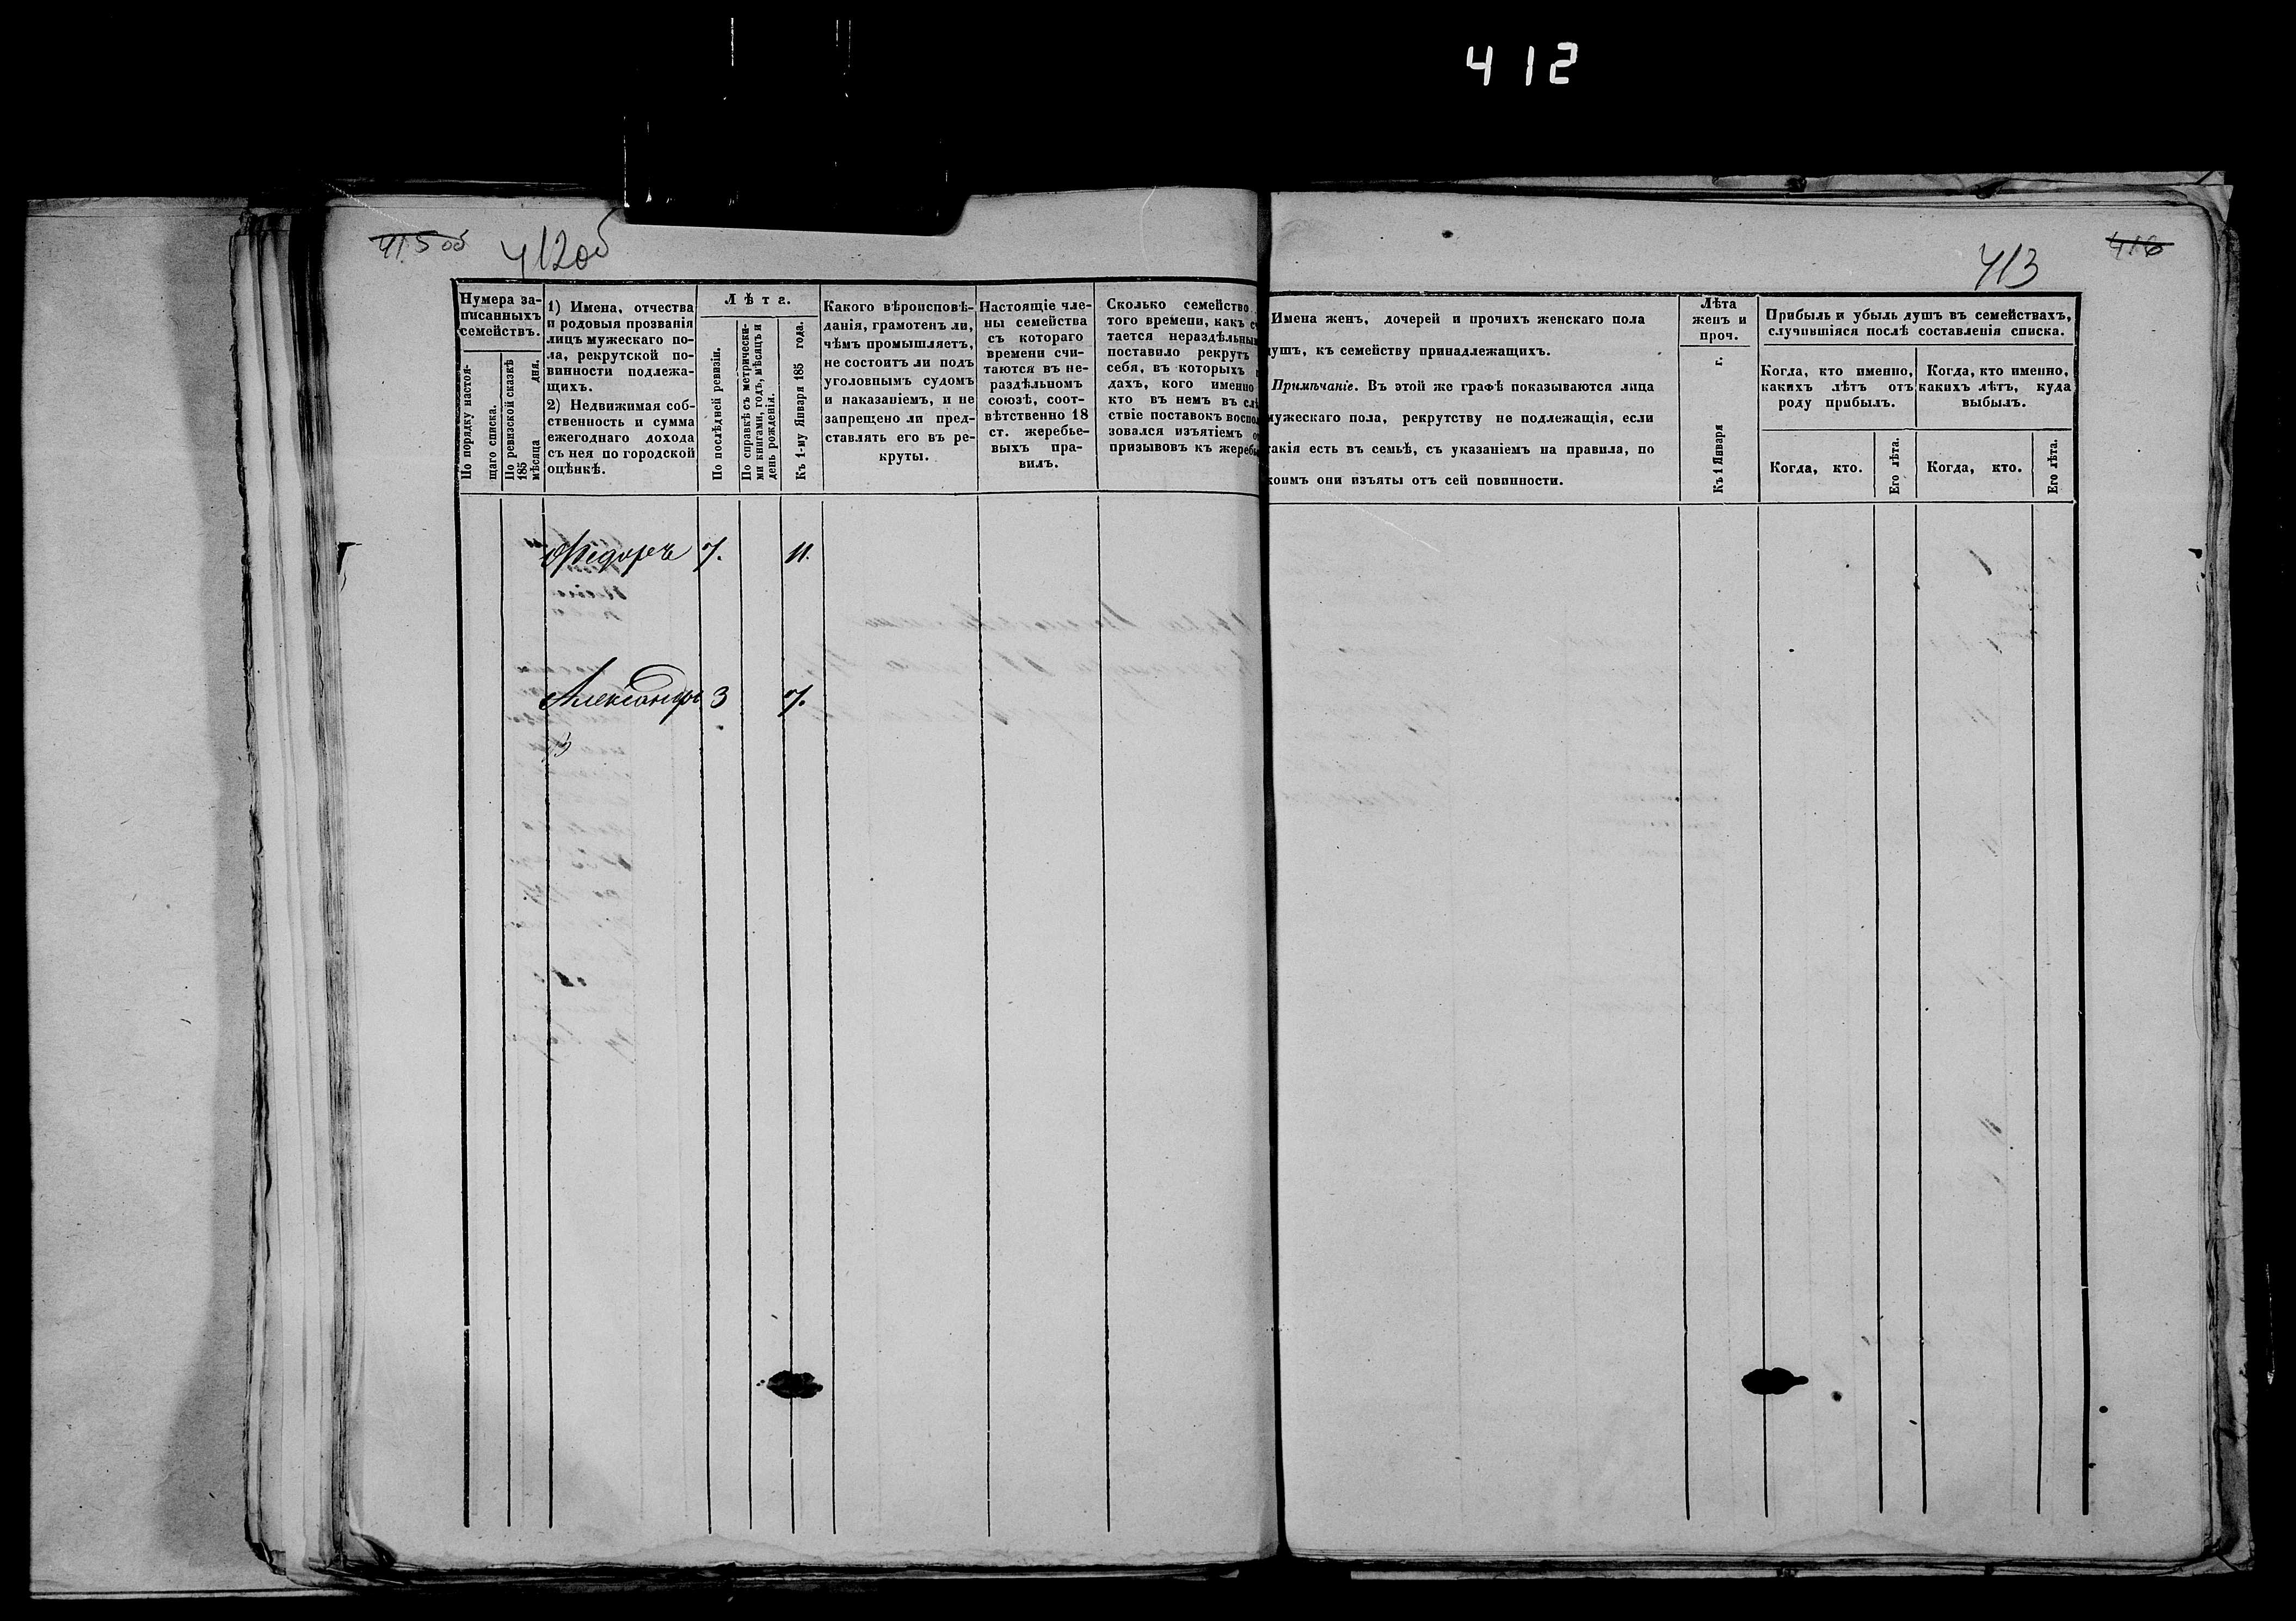 412
415 об
412об
413
416
Нумера за-
писанныхъ
семействъ.
По порядку настоя-
щаго списка.
По ревизской сказкѣ
185
мѣсяца дня.
1) Имена, отчества
и родовыя прозванія
лицъ мужескаго по-
ла, рекрутской по-
винности подлежа-
щихъ.
2) Недвижимая соб-
ственность и сумма
ежегоднаго дохода
съ нея по городской
оцѣнкѣ.
Лѣта.
По послѣдней ревизіи.
По справкѣ съ метрически-
ми книгами, годъ, мѣсяцъ и
день рожденія.
Къ 1-му Января 185 года.
Какого вѣроисповѣ-
данія, грамотенъ ли,
чѣмъ промышляетъ,
не состоитъ ли подъ
уголовнымъ судомъ
и наказаніемъ, и не
запрещено ли пред-
ставлять его въ ре-
круты.
Настоящіе чле-
ны семейства
съ котораго
времени счи-
таются въ не-
раздѣльномъ
союзѣ, соот-
вѣтственно 18
ст. жеребье-
выхъ пра-
вилъ.
Сколько семейство
того времени, какъ с
тается нераздѣльным
поставило рекрутъ
себя, въ которыхъ г
дахъ, кого именно
кто въ немъ въ слѣ
ствіе поставокъ воспол
зовался изъятіемъ о
призывовъ къ жеребь
Имена женъ, дочерей и прочихъ женскаго пола
душъ, къ семейству принадлежащихъ.
Примѣчаніе. Въ этой же графѣ показываются лица
мужескаго пола, рекрутству не подлежащія, если
такія есть въ семьѣ, съ указаніемъ на правила, по
коимъ они изъяты отъ сей повинности.
Лѣта
женъ и
проч.
Къ 1 Января г.
Прибыль и убыль душъ въ семействахъ,
случившіяся послѣ составленія списка.
Когда, кто именно,
какихъ лѣтъ отъ
роду прибылъ.
Когда, кто именно,
какихъ лѣтъ, куда
выбылъ.
Когда, кто.
Его лѣта.
Когда, кто.
Его лѣта.
Ѳедоръ 7. 11.
Александръ 3 7.